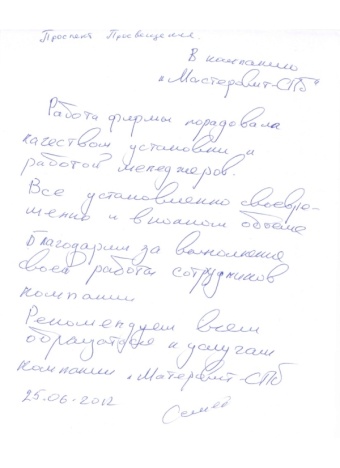 Проспект Просвещения.
В компанию
"Мастеровит-СПб"
Работа фирмы порадовала
качеством установки и
работой менеджеров.
Все установленно своевре-
менно и в полном объёме
Благодарим за выполнение
своей работы сотрудников
компании
Рекомендуем всем
обращаться к услугам
компании "Матеровит-СПб
25.06-2012